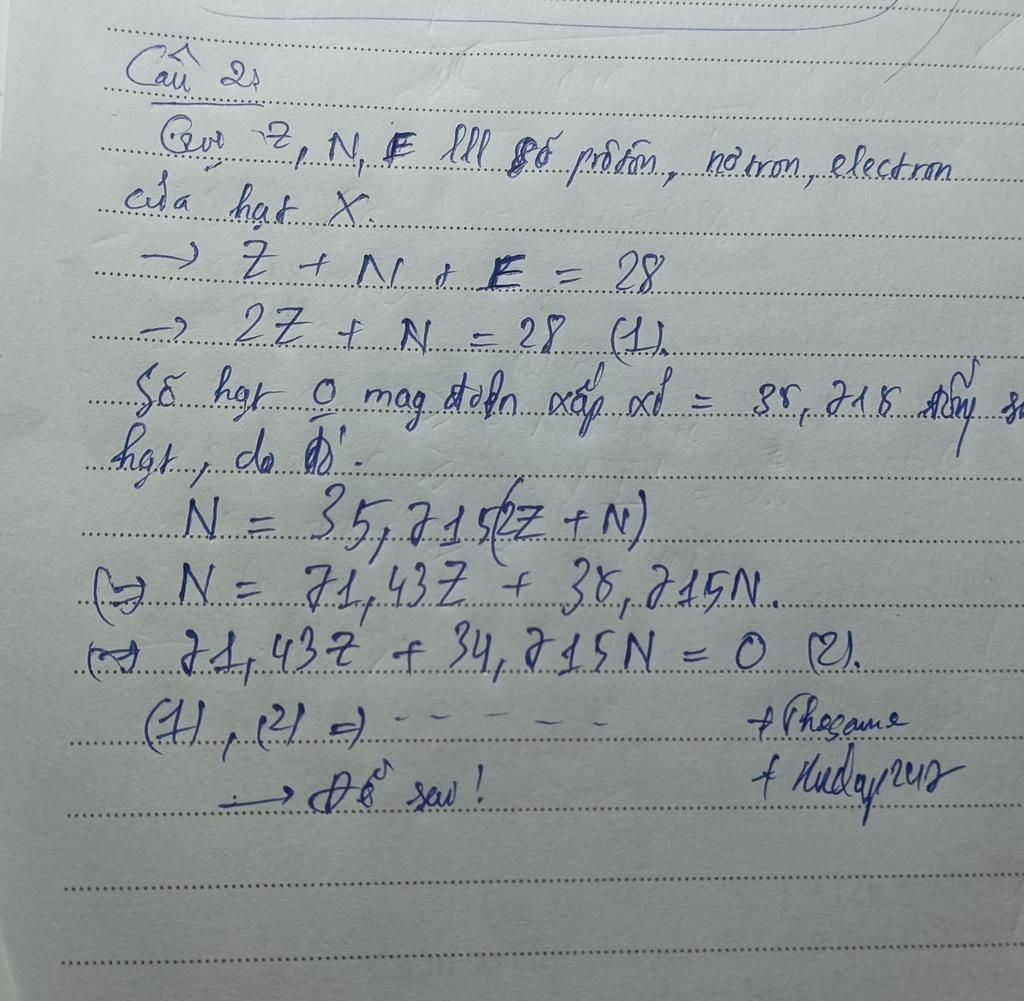 Câu 2:
Gọi Z, N, E lll số prôtôn, nơtron, electron
của hạt X.
→ Z + N + E = 28
→ 2Z + N = 28 (1).
Số hạt 0 mag điện xấp xỉ = 35,715 tổng s
hạt, do đó.
N = 35,715(2Z + N)
(=) N = 71,43Z + 35,715N.
(=) 71,43Z + 34,715N = 0 (2).
(1), (2) =) - - - - - -
→ Đề sai!
+
+